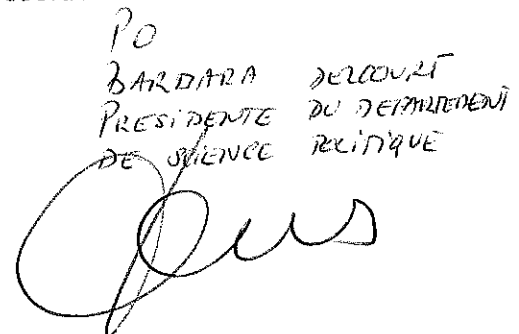 PO
BARBARA DELCOURT
PRESIDENTE DU DEPARTEMENT
DE SCIENCE POLITIQUE